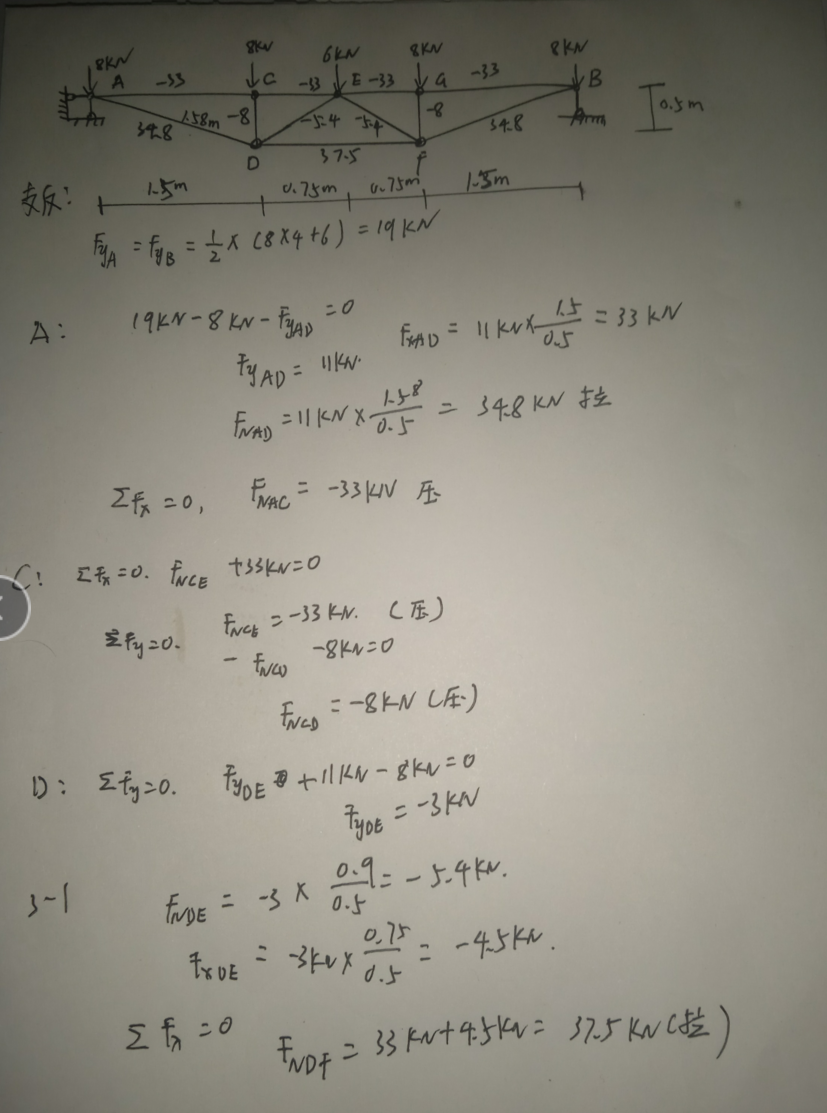 8KN 8KN 6KN 8KN 8KN
A -33 C -33 E -33 G -33 B
34.8 1.58m -8 -5.4 -5.4 -8 34.8 0.5m
D 37.5 F
支反: 1.5m 0.75m 0.75m 1.5m
FyA = FyB = 1/2 × (8×4+6) = 19KN
A: 19KN-8KN-FyAD=0 FxAD = 11KN×1.5/0.5 = 33KN
FyAD = 11KN.
FNAD = 11KN × 1.58/0.5 = 34.8KN 拉
ΣFx=0, FNAC = -33KN 压
C: ΣFx=0. FNCE +33KN=0
FNCE = -33KN. (压)
ΣFy=0. - FNCD -8KN=0
FNCD = -8KN (压)
D: ΣFy=0. FyDE +11KN-8KN=0
FyDE = -3KN
3-1 FNDE = -3 × 0.9/0.5 = -5.4KN.
FxDE = -3KN × 0.75/0.5 = -4.5KN.
ΣFx=0 FNDF = 33KN+4.5KN = 37.5KN (拉)